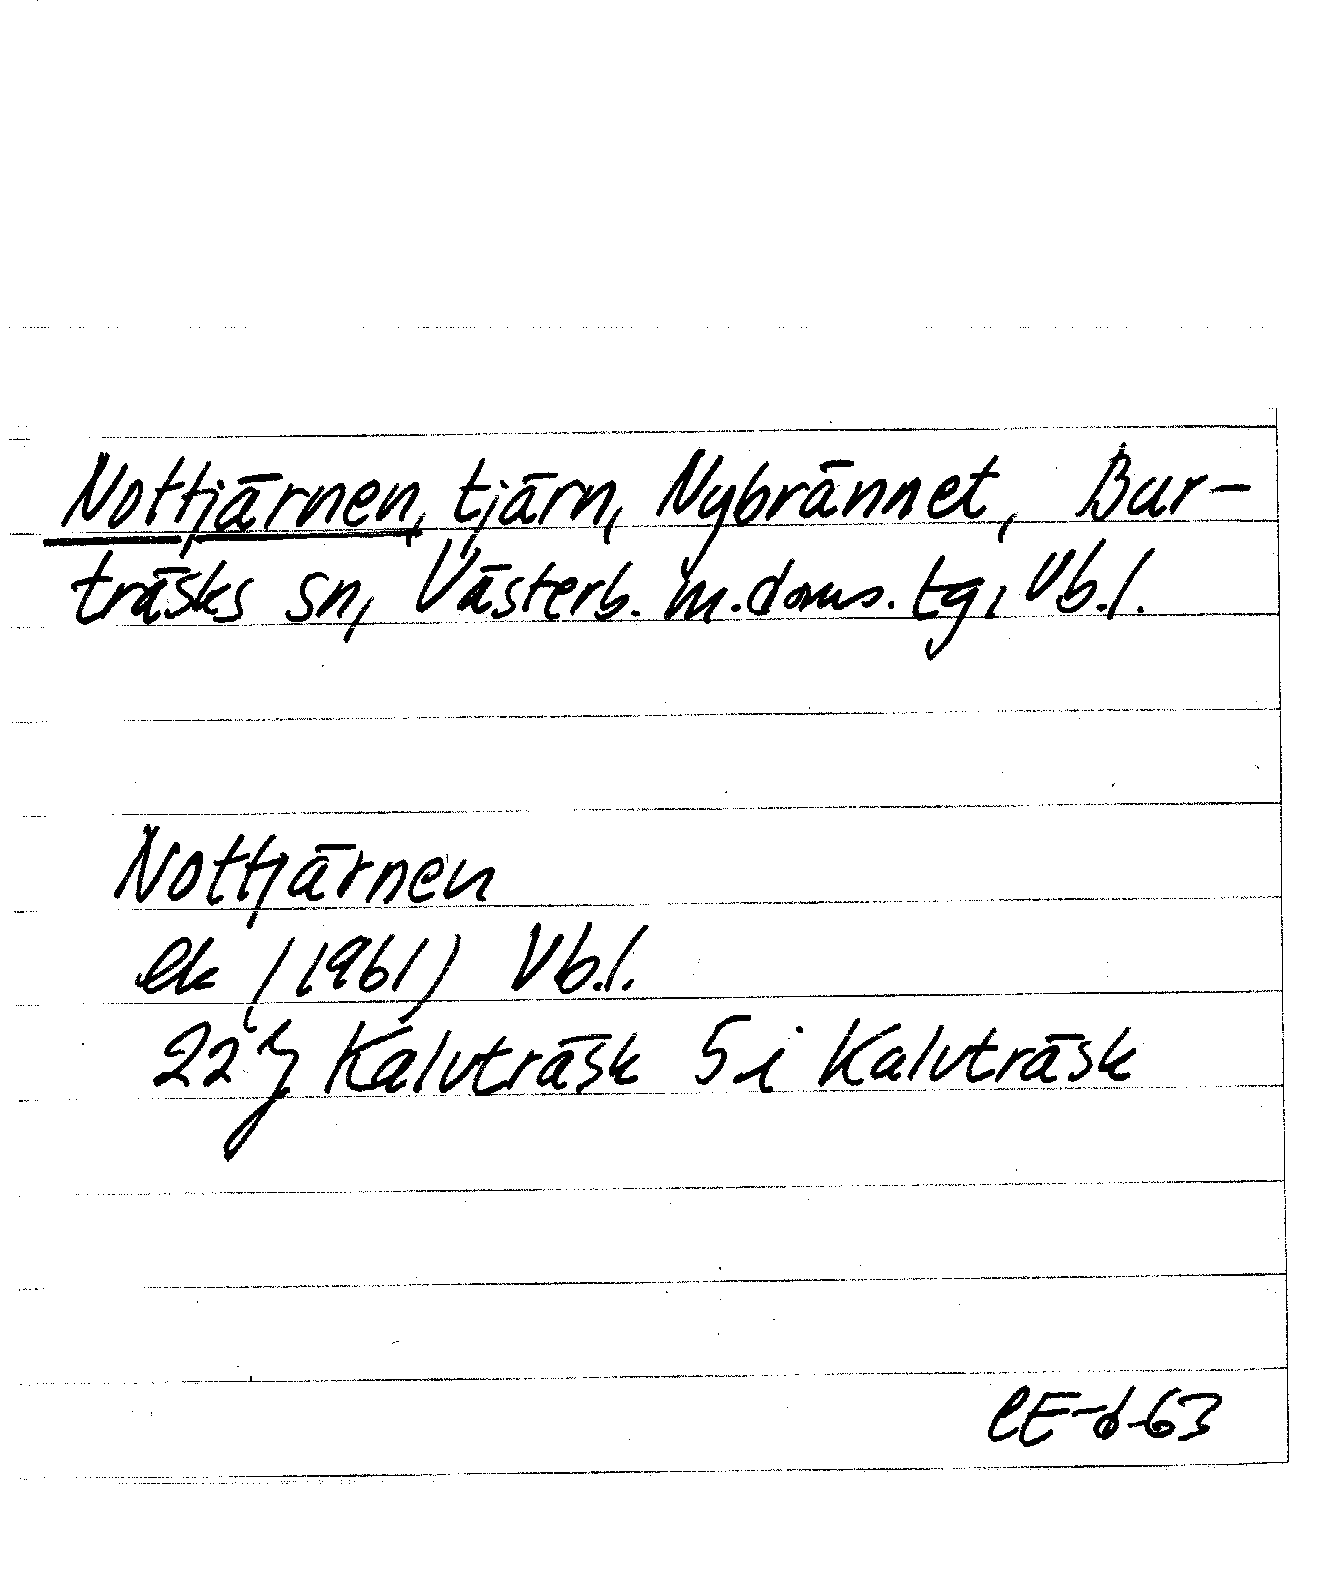 Nottjärnen, tjärn, Nybrännet, Bur-
träsks sn, Västerb. m. doms. tg, Vb.l.
Nottjärnen
ek (1961) Vb.l.
22 J Kalvträsk 5 i Kalvträsk
CE-d-63